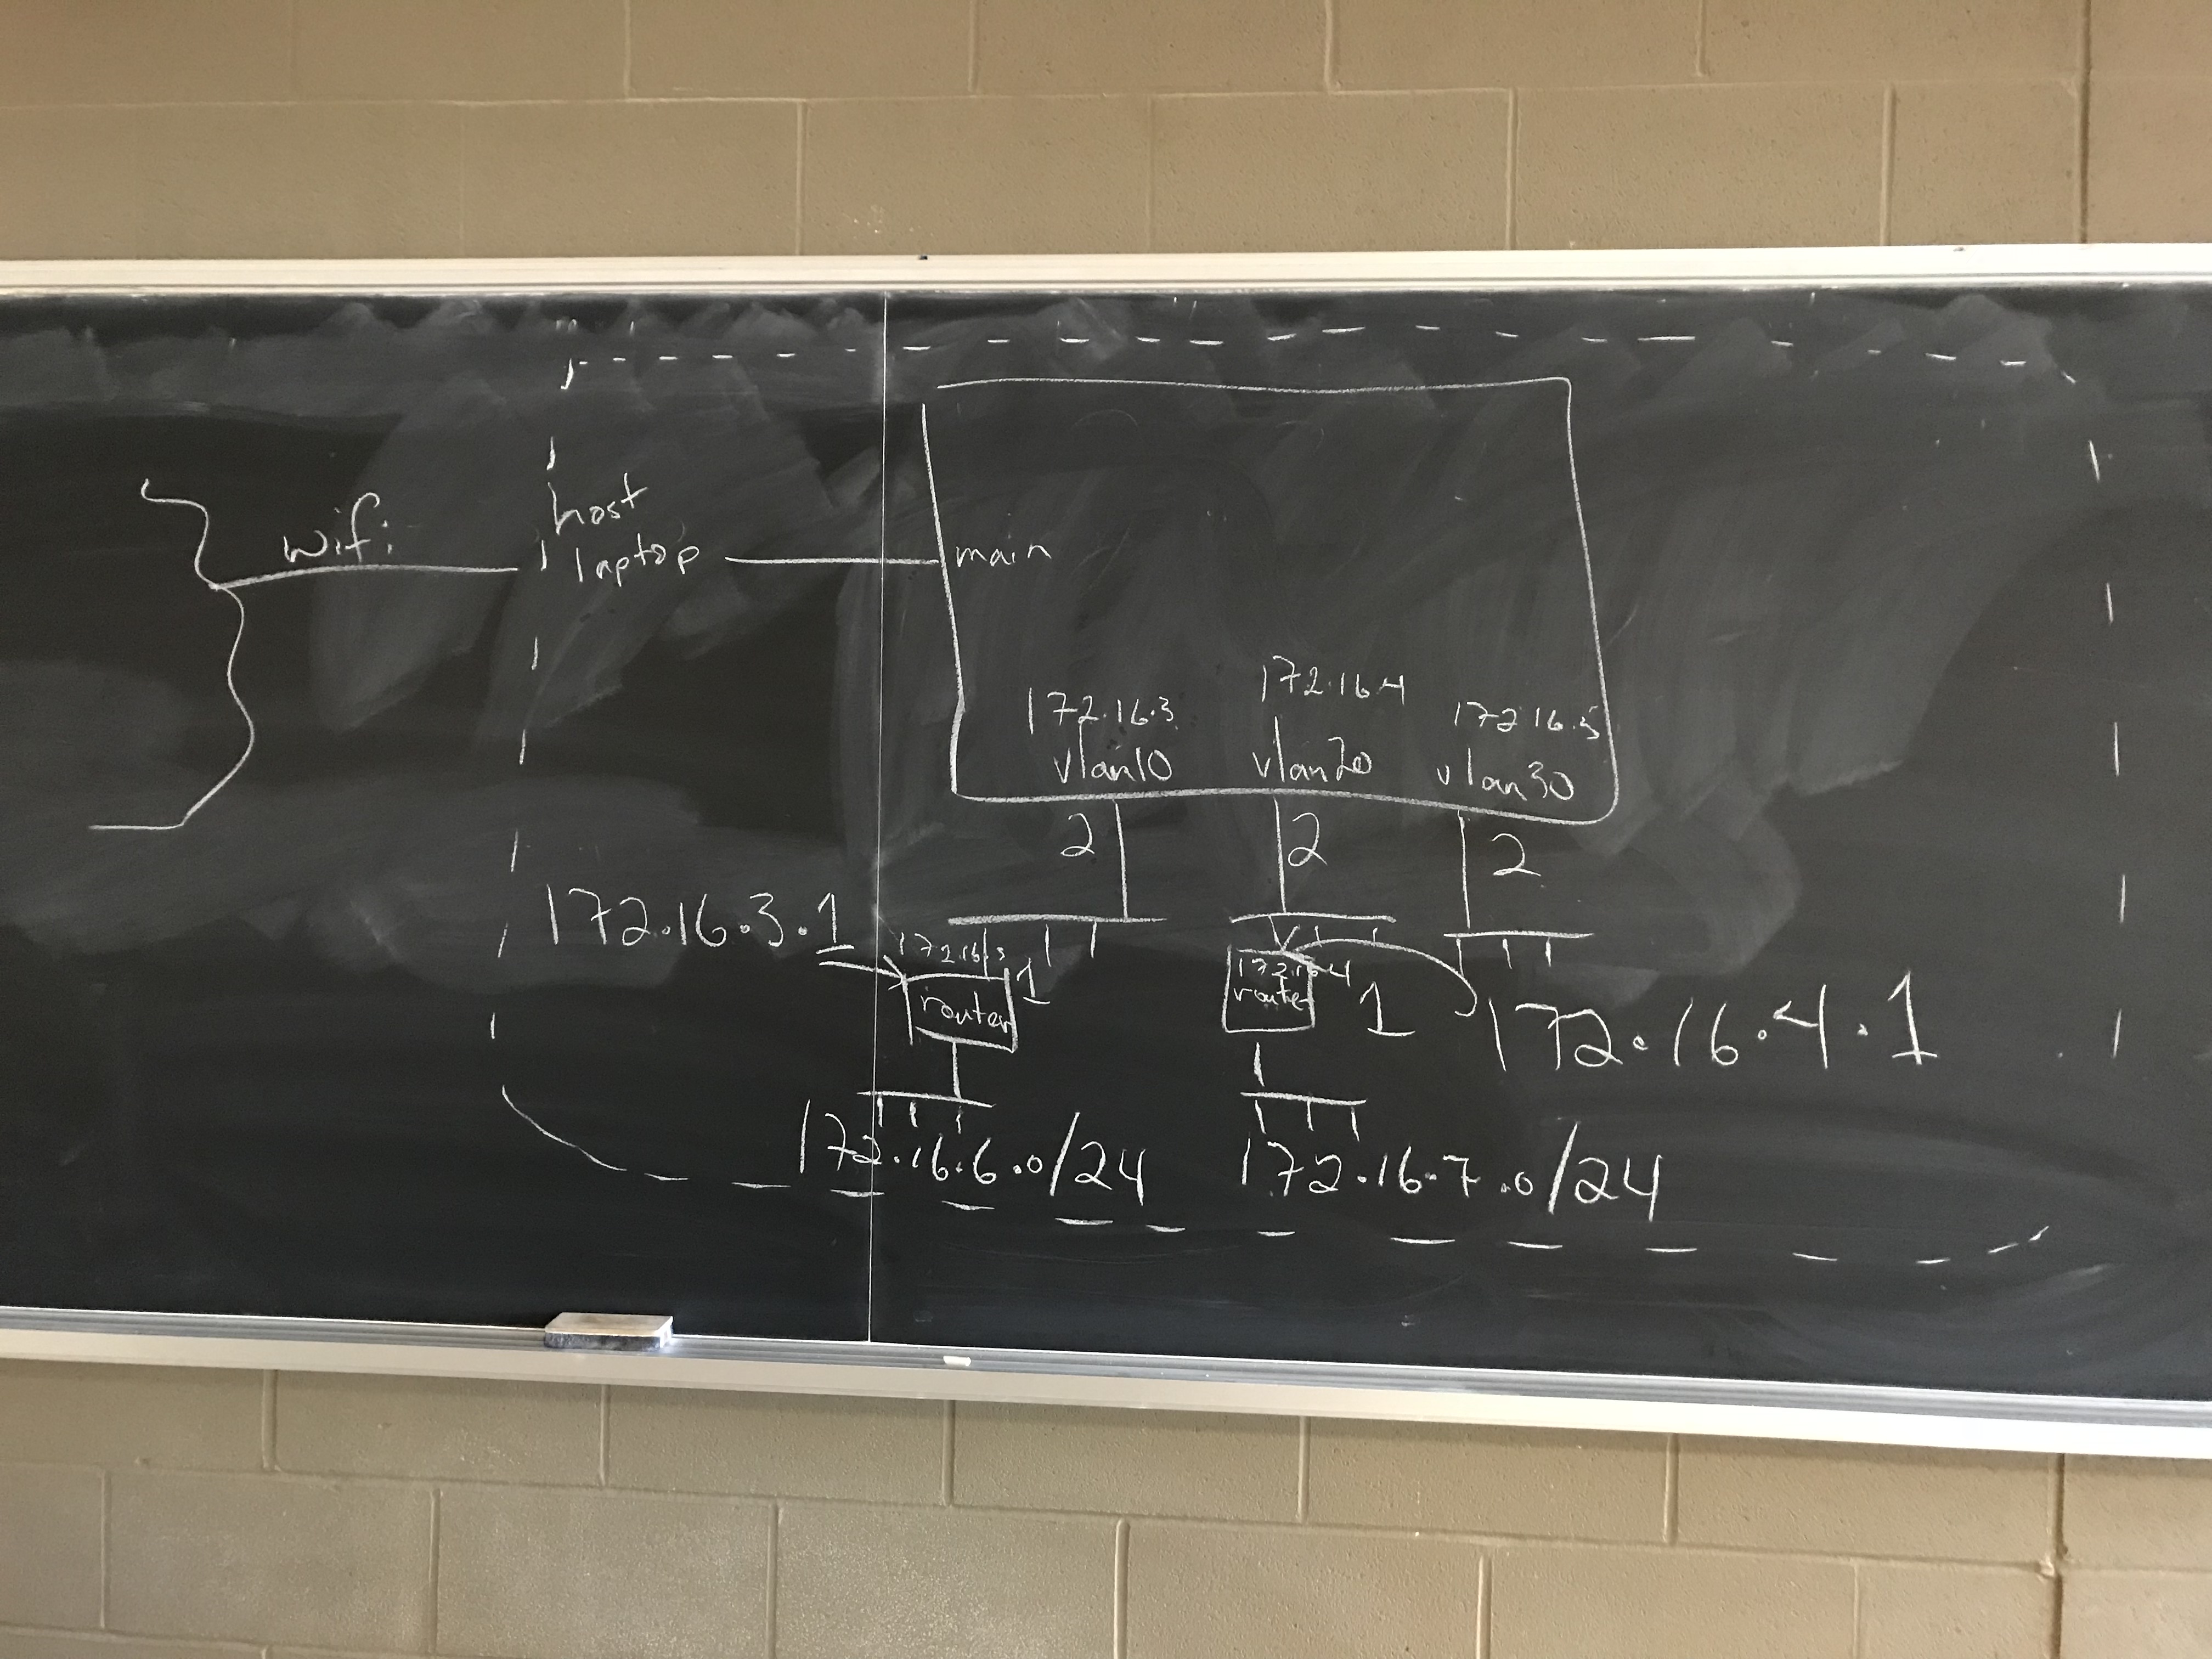 host
wifi
laptop
main
172.16.4
172.16.3
172.16.5
vlan10
vlan20
vlan30
2
2
2
172.16.3.1
172.16.3
1
router
172.16.4
router
1
172.16.4.1
172.16.6.0/24
172.16.7.0/24